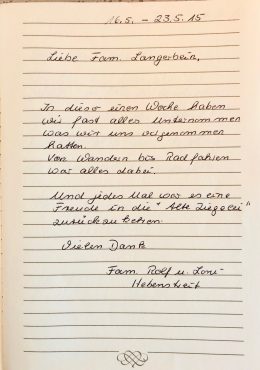 16.5. - 23.5.15
Liebe Fam. Langerbein,
In dieser einen Woche haben
wir fast alles Unternommen
was wir uns vorgenommen
hatten.
Von Wandern bis Radfahren
war alles dabei.
Und jedes Mal war es eine
Freude in die "Alte Ziegelei"
zurückzukehren.
Vielen Dank
Fam. Rolf u. Loni
Hebenstreit